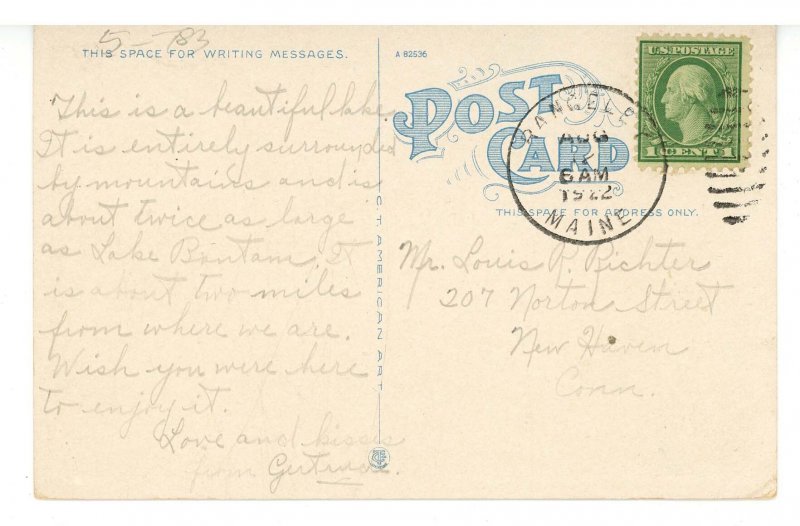 5-783
THIS SPACE FOR WRITING MESSAGES.
A 82536
This is a beautiful lake
It is entirely surrounded
by mountains and is
about twice as large
as Lake Bantam, It
is about two miles
from where we are.
Wish you were here
to enjoy it.
Love and kisses
from Gertrude.
C.T. AMERICAN ART
POST CARD
RANGELEY
AUG
12
6 AM
1922
MAINE
U.S. POSTAGE
1 CENT 1
THIS SPACE FOR ADDRESS ONLY.
Mr. Louis R. Richter
207 Norton Street
New Haven
Conn.